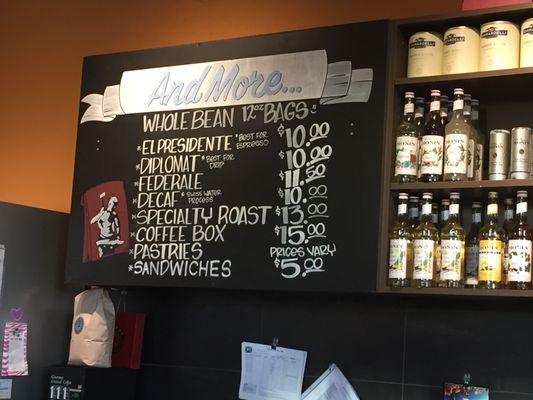 And More...
WHOLE BEAN 12oz BAGS
*EL PRESIDENTE *BEST FOR ESPRESSO $10.00
*DIPLOMAT *BEST FOR DRIP 10.00
*FEDERALE 11.50
*DECAF *SWISS WATER PROCESS 10.00
*SPECIALTY ROAST 13.00
*COFFEE BOX 15.00
*PASTRIES PRICES VARY
*SANDWICHES $5.00
GHIRARDELLI
GHIRARDELLI
GHIRARDELLI
MONIN
MONIN
MONIN
MONIN
MONIN
MONIN
MONIN
MONIN
MONIN
MONIN